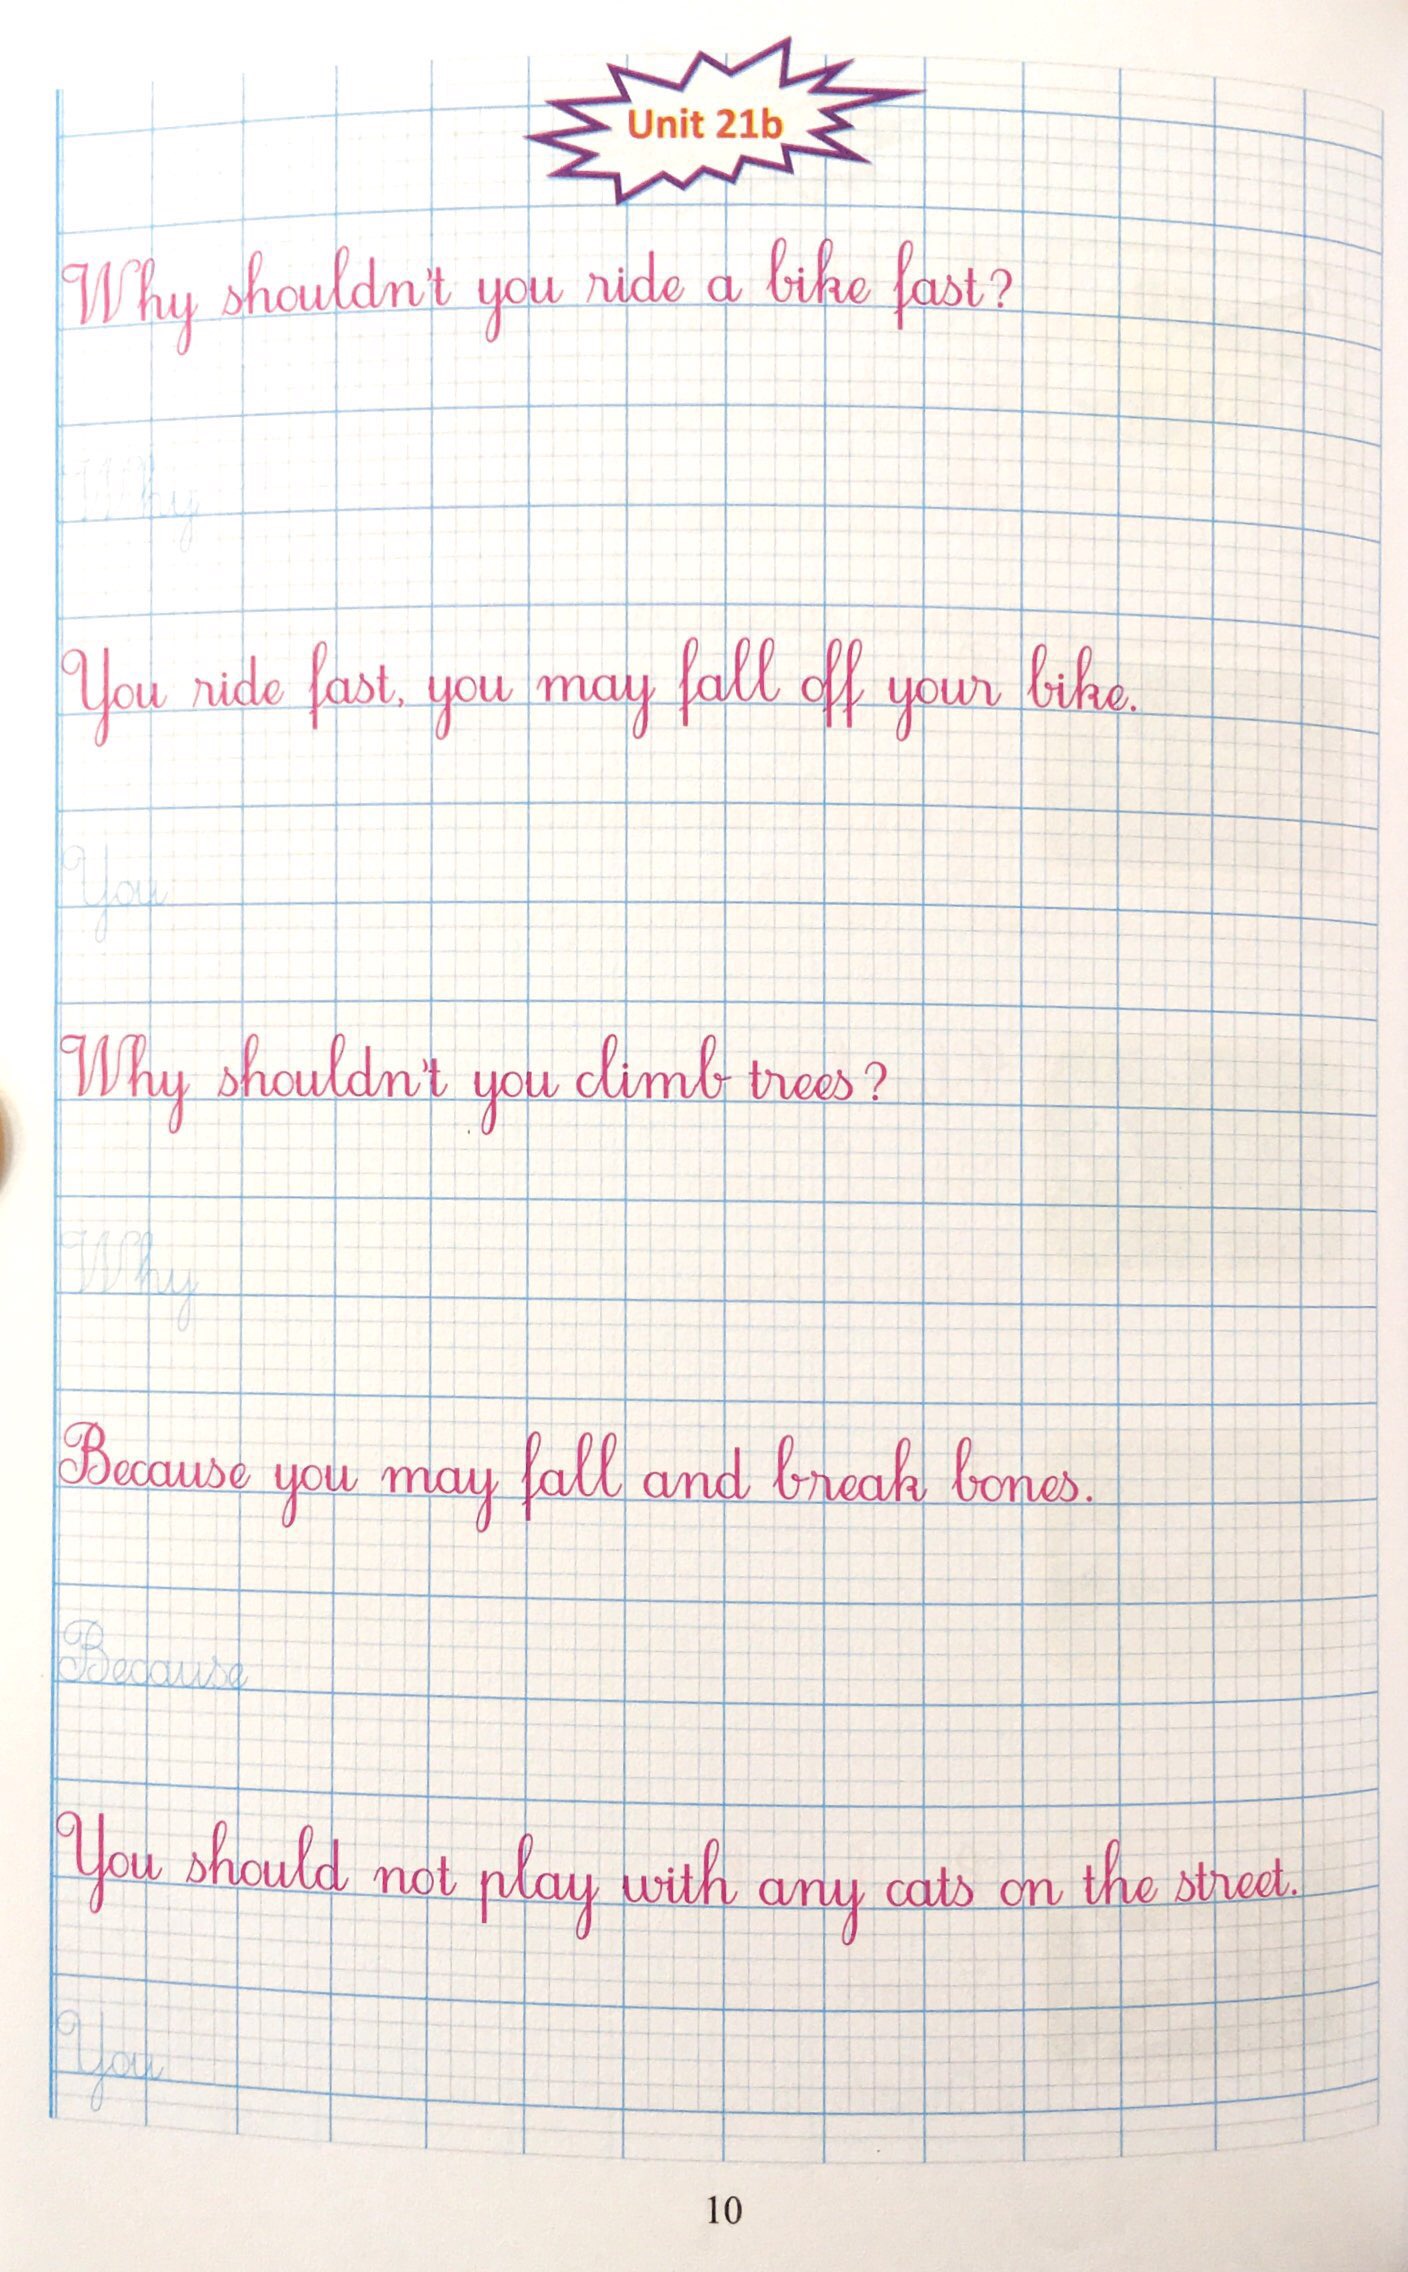 Unit 21b
Why shouldn't you ride a bike fast?
Why
You ride fast, you may fall off your bike.
You
Why shouldn't you climb trees?
Why
Because you may fall and break bones.
Because
You should not play with any cats on the street.
You
10